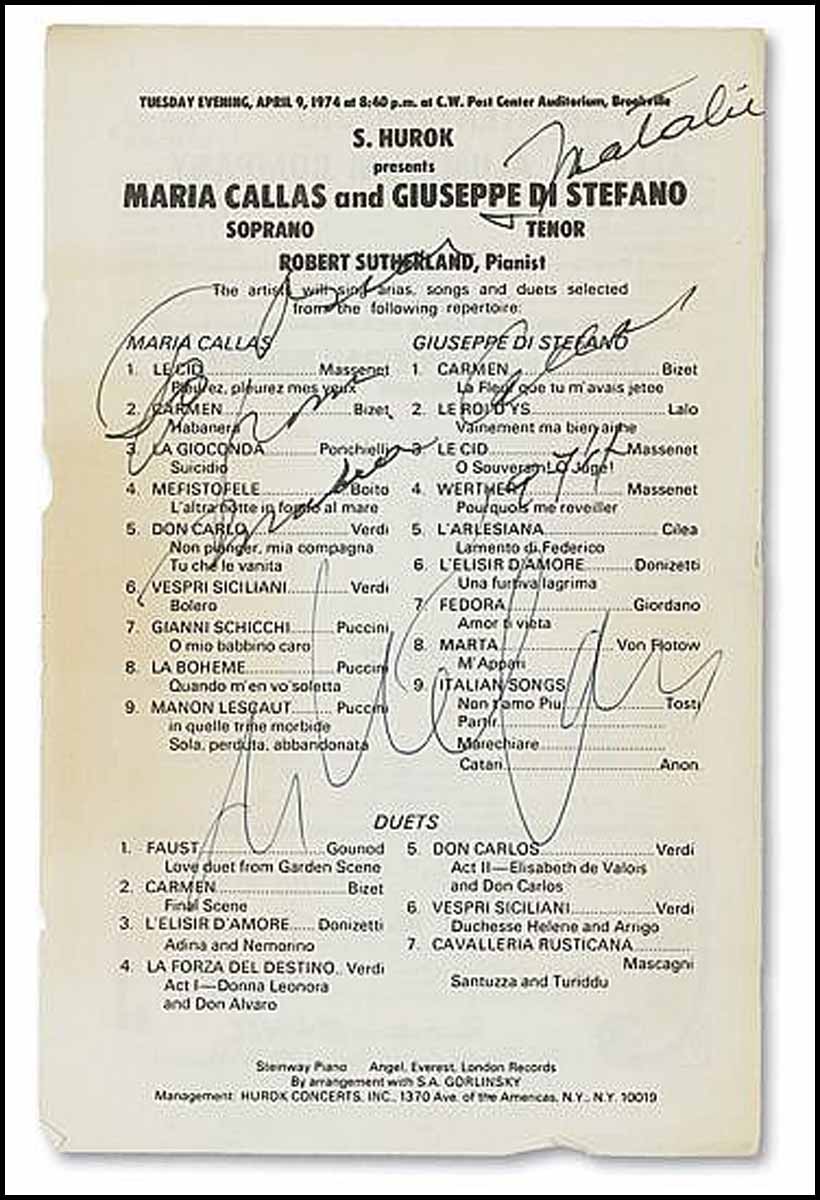 TUESDAY EVENING, APRIL 9, 1974 at 8:40 p.m. at C.W. Post Center Auditorium, Brookville
Natalie
S. HUROK
presents
MARIA CALLAS and GIUSEPPE DI STEFANO
SOPRANO TENOR
ROBERT SUTHERLAND, Pianist
The artists will sing arias, songs and duets selected
from the following repertoire:
MARIA CALLAS
1. LE CID Massenet
Pleurez, pleurez mes yeux
2. CARMEN Bizet
Habanera
3. LA GIOCONDA Ponchielli
Suicidio
4. MEFISTOFELE Boito
L'altra notte in fondo al mare
5. DON CARLO Verdi
Non pianger, mia compagna
Tu che le vanita
6. VESPRI SICILIANI Verdi
Bolero
7. GIANNI SCHICCHI Puccini
O mio babbino caro
8. LA BOHEME Puccini
Quando m'en vo' soletta
9. MANON LESCAUT Puccini
in quelle trine morbide
Sola, perduta, abbandonata
GIUSEPPE DI STEFANO
1. CARMEN Bizet
La Fleur que tu m'avais jetee
2. LE ROI D'YS Lalo
Vainement ma bien aime
3. LE CID Massenet
O Souverain! O Juge!
4. WERTHER Massenet
Pourquois me reveiller
5. L'ARLESIANA Cilea
Lamento di Federico
6. L'ELISIR D'AMORE Donizetti
Una furtiva lagrima
7. FEDORA Giordano
Amor ti vieta
8. MARTA Von Flotow
M'Appari
9. ITALIAN SONGS
Non t'amo Piu Tosti
Partir
Marechiare
Catari Anon
Maria Callas
1974
DUETS
1. FAUST Gounod
Love duet from Garden Scene
2. CARMEN Bizet
Final Scene
3. L'ELISIR D'AMORE Donizetti
Adina and Nemorino
4. LA FORZA DEL DESTINO Verdi
Act I—Donna Leonora
and Don Alvaro
5. DON CARLOS Verdi
Act II—Elisabeth de Valois
and Don Carlos
6. VESPRI SICILIANI Verdi
Duchesse Helene and Arrigo
7. CAVALLERIA RUSTICANA
Mascagni
Santuzza and Turiddu
Steinway Piano Angel, Everest, London Records
By arrangement with S.A. GORLINSKY
Management: HUROK CONCERTS, INC., 1370 Ave. of the Americas, N.Y., N.Y. 10019